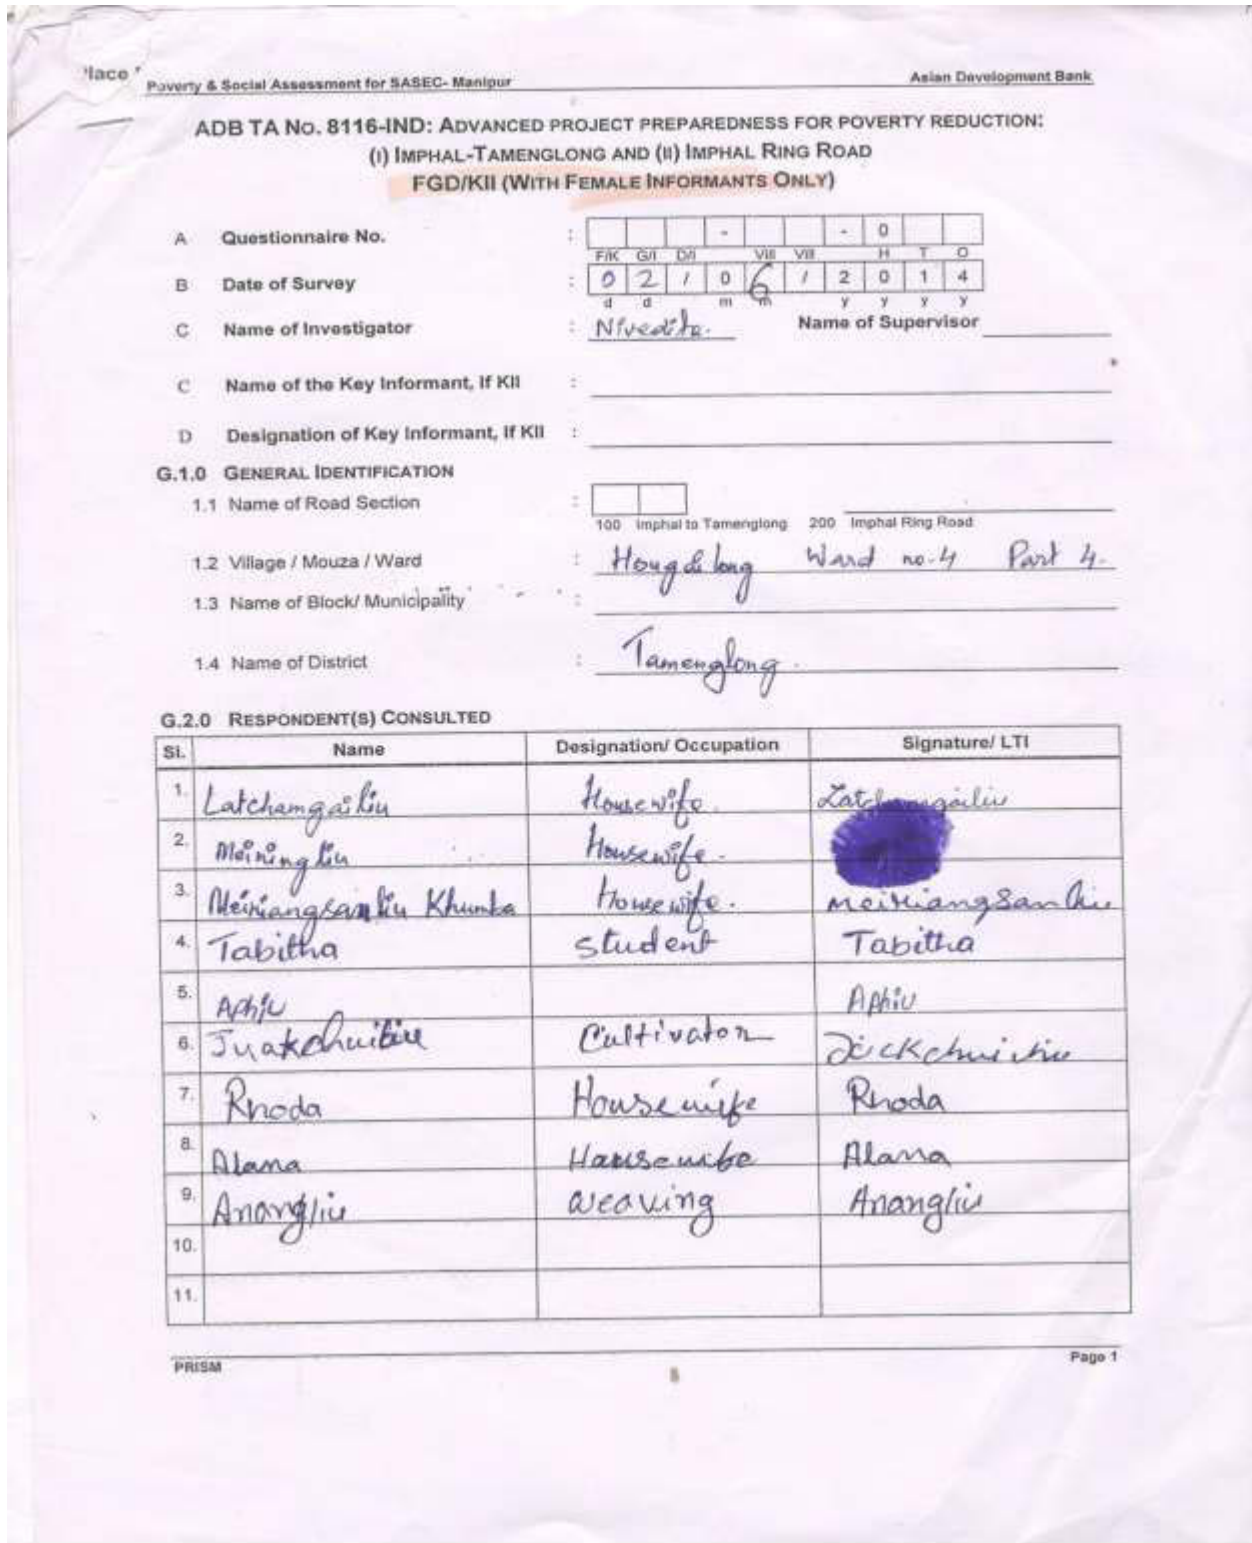 'lace
Poverty & Social Assessment for SASEC- Manipur Asian Development Bank
ADB TA No. 8116-IND: ADVANCED PROJECT PREPAREDNESS FOR POVERTY REDUCTION:
(I) IMPHAL-TAMENGLONG AND (II) IMPHAL RING ROAD
FGD/KII (WITH FEMALE INFORMANTS ONLY)
A Questionnaire No. : - - 0
F/K G/I D/I Vill Vill H T O
B Date of Survey : 0 2 / 0 6 / 2 0 1 4
d d m m y y y y
C Name of Investigator : Nivedita. Name of Supervisor
C Name of the Key Informant, If KII :
D Designation of Key Informant, If KII :
G.1.0 GENERAL IDENTIFICATION
1.1 Name of Road Section :
100 Imphal to Tamenglong 200 Imphal Ring Road
1.2 Village / Mouza / Ward : Ward no.4 Part 4.
1.3 Name of Block/ Municipality :
1.4 Name of District : Tamenglong.
G.2.0 RESPONDENT(S) CONSULTED
Sl. Name Designation/ Occupation Signature/ LTI
1. Latchamgailiu Housewife. Latchamgailiu
2. Meiningliu Housewife.
3. Meiriangsanliu Khumba Housewife. meiriangsanliu
4. Tabitha student Tabitha
5. Aphiu Aphiu
6. Cultivator
7. Rhoda Housewife Rhoda
8. Alana Housewife Alana
9. Anangliu weaving Anangliu
10.
11.
PRISM Page 1